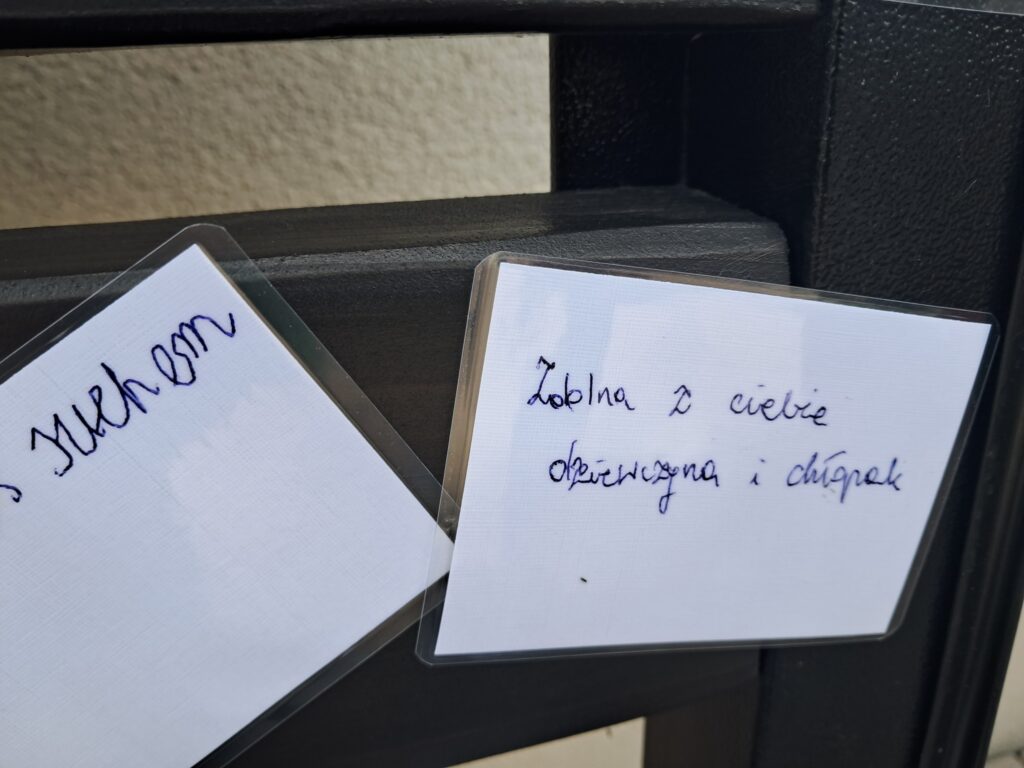 ruchem
Zdolna z ciebie
dziewczyna i chłopak